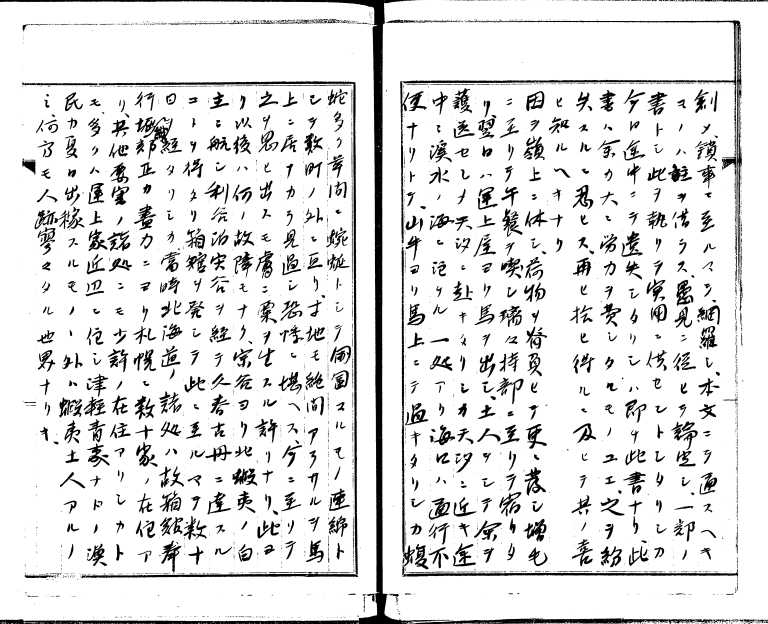 剣メ、鎖事ニ至ルマテ網羅シ、本文ニテ通スヘキ
マノハ註ヲ借ラス、愚見ニ従ヒテ論定シ、一部ノ
書トシ此ヲ執リテ実用ニ供セントシタリシカ
今日途中ニテ遺失シタリシハ即チ此書ナリ、此
書ハ余カ大ニ労力ヲ費シタルモノユエ、之ヲ紛
失スルニ忍ヒス、再ヒ拾ヒ得ルニ及ヒテ其ノ喜
ヒ知ルヘキナリ
因ヲ嶺上ニ休シ、荷物ヲ脊負ヒテ更ニ落シ増毛
ニ至リテ午餐ヲ喫シ瑀々持部ニ至リテ宿リタ
リ翌日ハ運上屋ヨリ馬ヲ出シ、土人ヲシテ余ヲ
護送セシメ天汐ニ赴ケタリシカ天汐ニ近キ途
中ニ溪水ノ海ニ注クル一処アリ海口ハ通行不
便ナリトテ、山ヰヨリ馬上ニテ過ケタリシカ蝮
蛇多ク草間ニ蜿蜒トシテ圏圓スルモノ連綿ト
シテ数町ノ外ニ亘リ、寸地モ絶間アラサルヲ馬
上ニ居ナカラ見過シ恐怖ニ堪ヘス、今ニ至リテ
之ヲ思ヒ出スモ膚ニ粟ヲ生スル許リナリ、此ヨ
リ以後ハ何ノ故障モナク、宗谷ヨリ北蝦夷ノ白
主ニ航シ利谷泊実谷ヲ経テ久春古丹ニ達スル
コトヲ得タリ箱館ヲ発シテ此ニ至ルマテ数十
日ヲ経タリシカ、当時北海道ノ諸処ハ故箱館奉
行堀織部正カ尽力ニヨリ札幌ニ数十家ノ在住ア
リ、其他要害ノ諸処ニモ少許ノ在住アリシカト
モ、多クハ運上家近辺ニ住シ津軽青森ナトノ漁
民カ夏日出稼スルモノヽ外ハ蝦夷土人アルノ
ミ何方モ人跡寥々タル世界ナリキ、